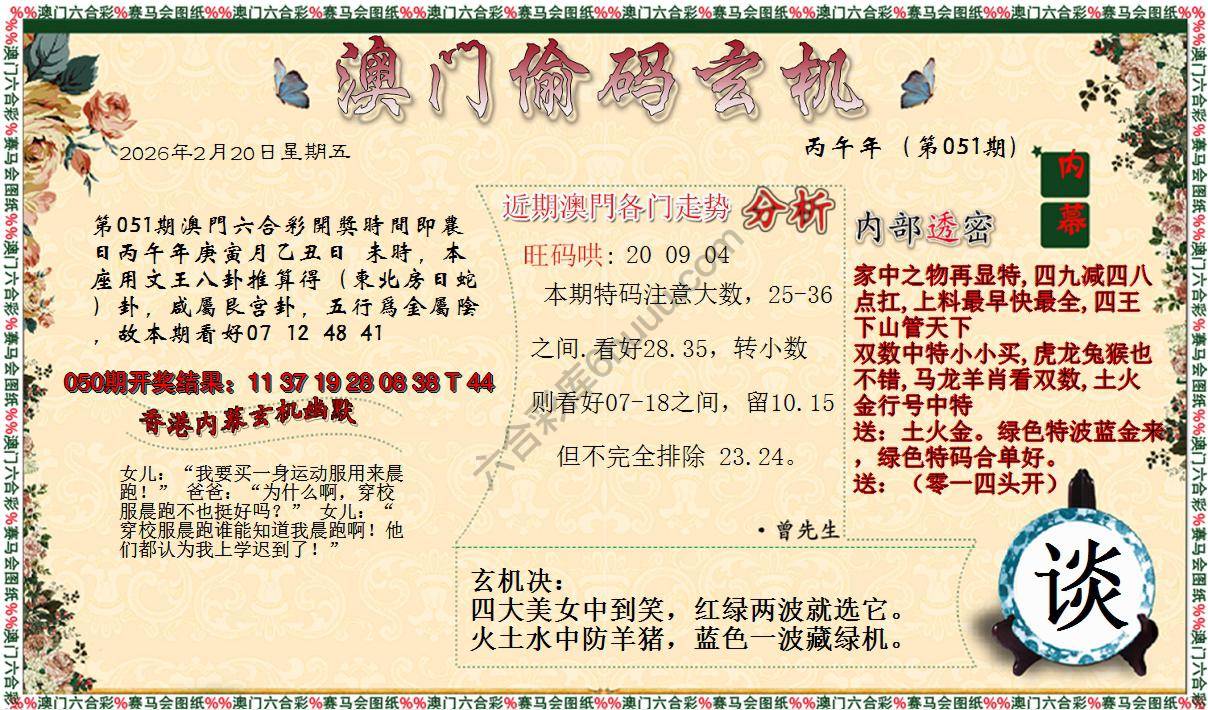 %%澳门六合彩%赛马会图纸%%澳门六合彩%赛马会图纸%%澳门六合彩%赛马会图纸%%澳门六合彩%赛马会图纸%%澳门六合彩%赛马会图纸%%澳门六合彩%赛马会图纸%%
澳门偷码玄机
2026年2月20日星期五
丙午年（第051期）
内
幕
第051期澳門六合彩開獎時間即農
日丙午年庚寅月乙丑日 未時，本
座用文王八卦推算得（東北房日蛇
）卦，咸屬艮宫卦，五行爲金屬陰
，故本期看好07 12 48 41
050期开奖结果：11 37 19 28 08 38 T 44
香港内幕玄机幽默
女儿：“我要买一身运动服用来晨
跑！” 爸爸：“为什么啊，穿校
服晨跑不也挺好吗？” 女儿：“
穿校服晨跑谁能知道我晨跑啊！他
们都认为我上学迟到了！”
近期澳門各门走势 分析
旺码哄: 20 09 04
本期特码注意大数，25-36
之间.看好28.35，转小数
则看好07-18之间，留10.15
但不完全排除 23.24。
·曾先生
内部透密
家中之物再显特,四九减四八
点扛,上料最早快最全,四王
下山管天下
双数中特小小买,虎龙兔猴也
不错,马龙羊肖看双数,土火
金行号中特
送：土火金。绿色特波蓝金来
，绿色特码合单好。
送：（零一四头开）
玄机决：
四大美女中到笑，红绿两波就选它。
火土水中防羊猪，蓝色一波藏绿机。
谈